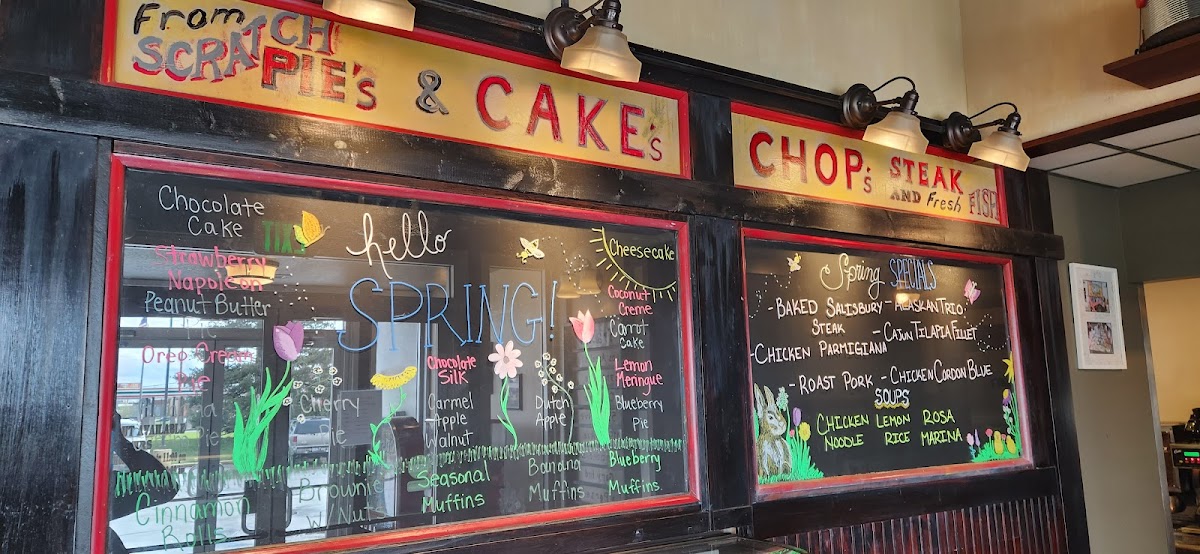 From
SCRATCH
PIE's & CAKE's
CHOP's STEAK
AND Fresh FISH
Chocolate
Cake
Strawberry
Napoleon
Peanut Butter
Oreo Cream
Pie
Cinnamon
Rolls
TIX
hello
SPRING!
Cherry
Pie
Brownie
W/Nuts
Chocolate
Silk
Carmel
Apple
Walnut
Seasonal
Muffins
Dutch
Apple
Banana
Muffins
Cheesecake
Coconut
Creme
Carrot
Cake
Lemon
Meringue
Blueberry
Pie
Blueberry
Muffins
Spring SPECIALS
- BAKED SALISBURY
STEAK
- CHICKEN PARMIGIANA
- ROAST PORK
- ALASKAN TRIO
- CAJUN TILAPIA FILLET
- CHICKEN CORDON BLUE
SOUPS
CHICKEN LEMON ROSA
NOODLE RICE MARINA